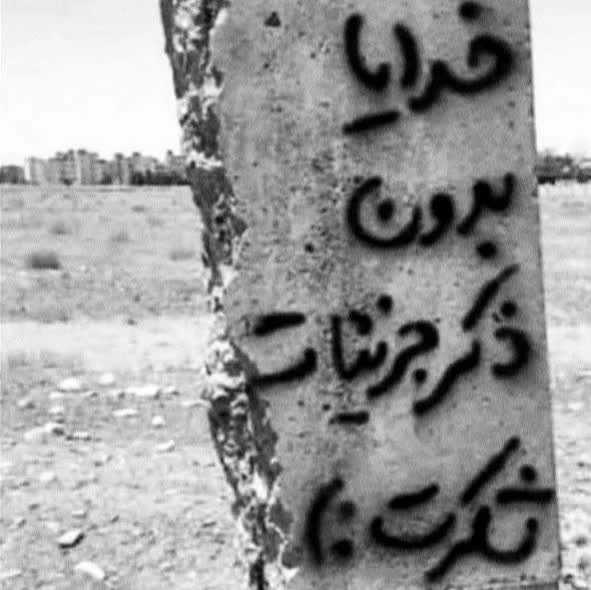 خدایا
بدون
ذکر جزئیات
شکرت :)